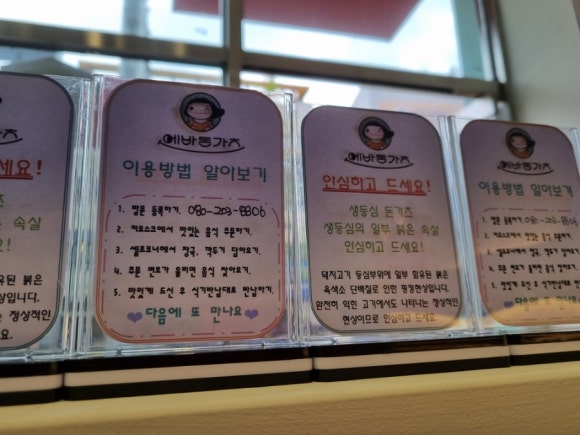 세요!
돈가츠
붉은 속살
드세요!
함유된 붉은
현상입니다.
는 정상적인
세요
에바돈가츠
이용방법 알아보기
1. 방문 등록하기. 080-203-8806
2. 키오스크에서 맛있는 음식 주문하기.
3. 셀프코너에서 장국, 깍두기 담아오기.
4. 주문 번호가 울리면 음식 찾아오기.
5. 맛있게 드신 후 식기반납대로 반납하기.
다음에 또 만나요
에바돈가츠
안심하고 드세요!
생등심 돈가츠
생등심의 일부 붉은 속살
안심하고 드세요!
돼지고기 등심부위에 일부 함유된 붉은
육색소 단백질로 인한 공정현상입니다.
완전히 익힌 고기에서도 나타나는 정상적인
현상이므로 안심하고 드세요
에바돈가츠
이용방법 알아보기
1. 방문 등록하기. 080-203-8806
2. 키오스크에서 맛있는 음식 주문하기.
3. 셀프코너에서 장국, 깍두기 담아오기.
4. 주문 번호가 울리면 음식 찾아오기.
5. 맛있게 드신 후 식기반납대로 반납
다음에 또 만나요